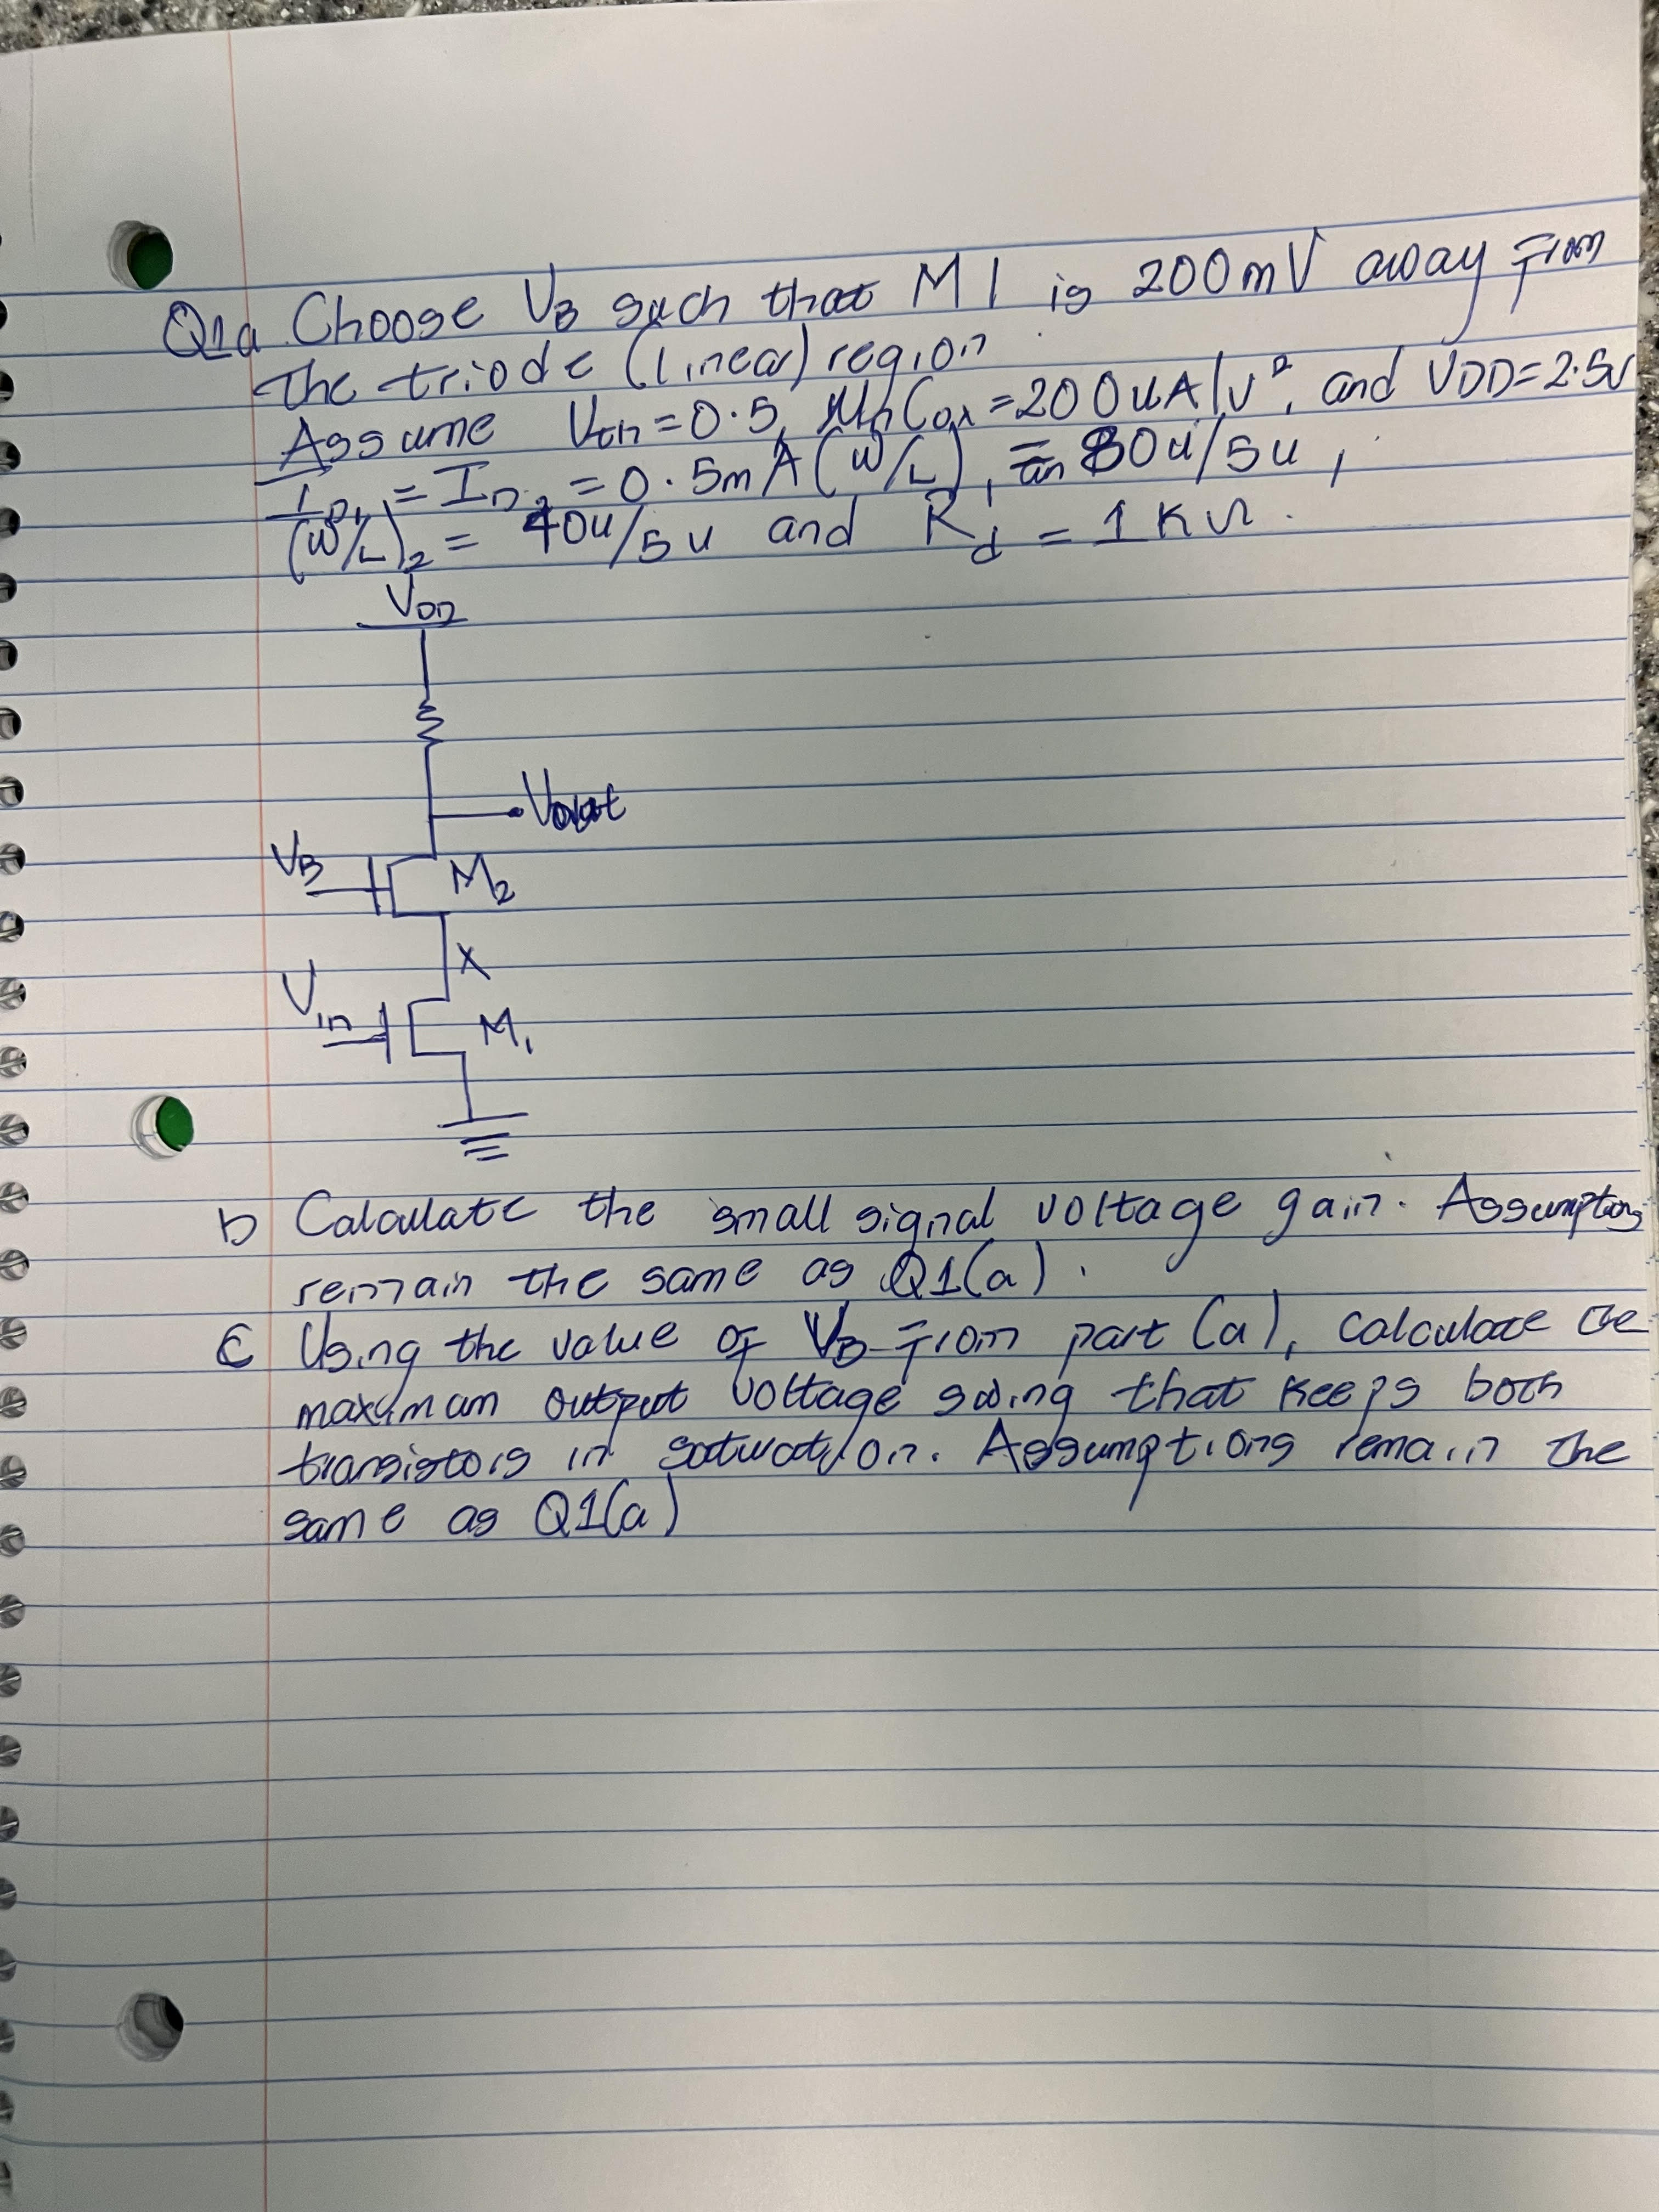 Q1a Choose VB such that M1 is 200mV away from
the triode (linear) region
Assume Vth=0.5, MnCox=200uA/V², and VDD=2.5V
ID1 = ID2 = 0.5mA (W/L)1 = 80u/5u,
(W/L)2 = 40u/5u and Rd = 1KΩ.
VDD
Vout
VB
M2
X
Vin
M1
b Calculate the small signal voltage gain. Assumptions
remain the same as Q1(a).
C Using the value of VB from part (a), calculate the
maximam output voltage swing that keeps both
transistors in saturation. Assumptions remain the
same as Q1(a)